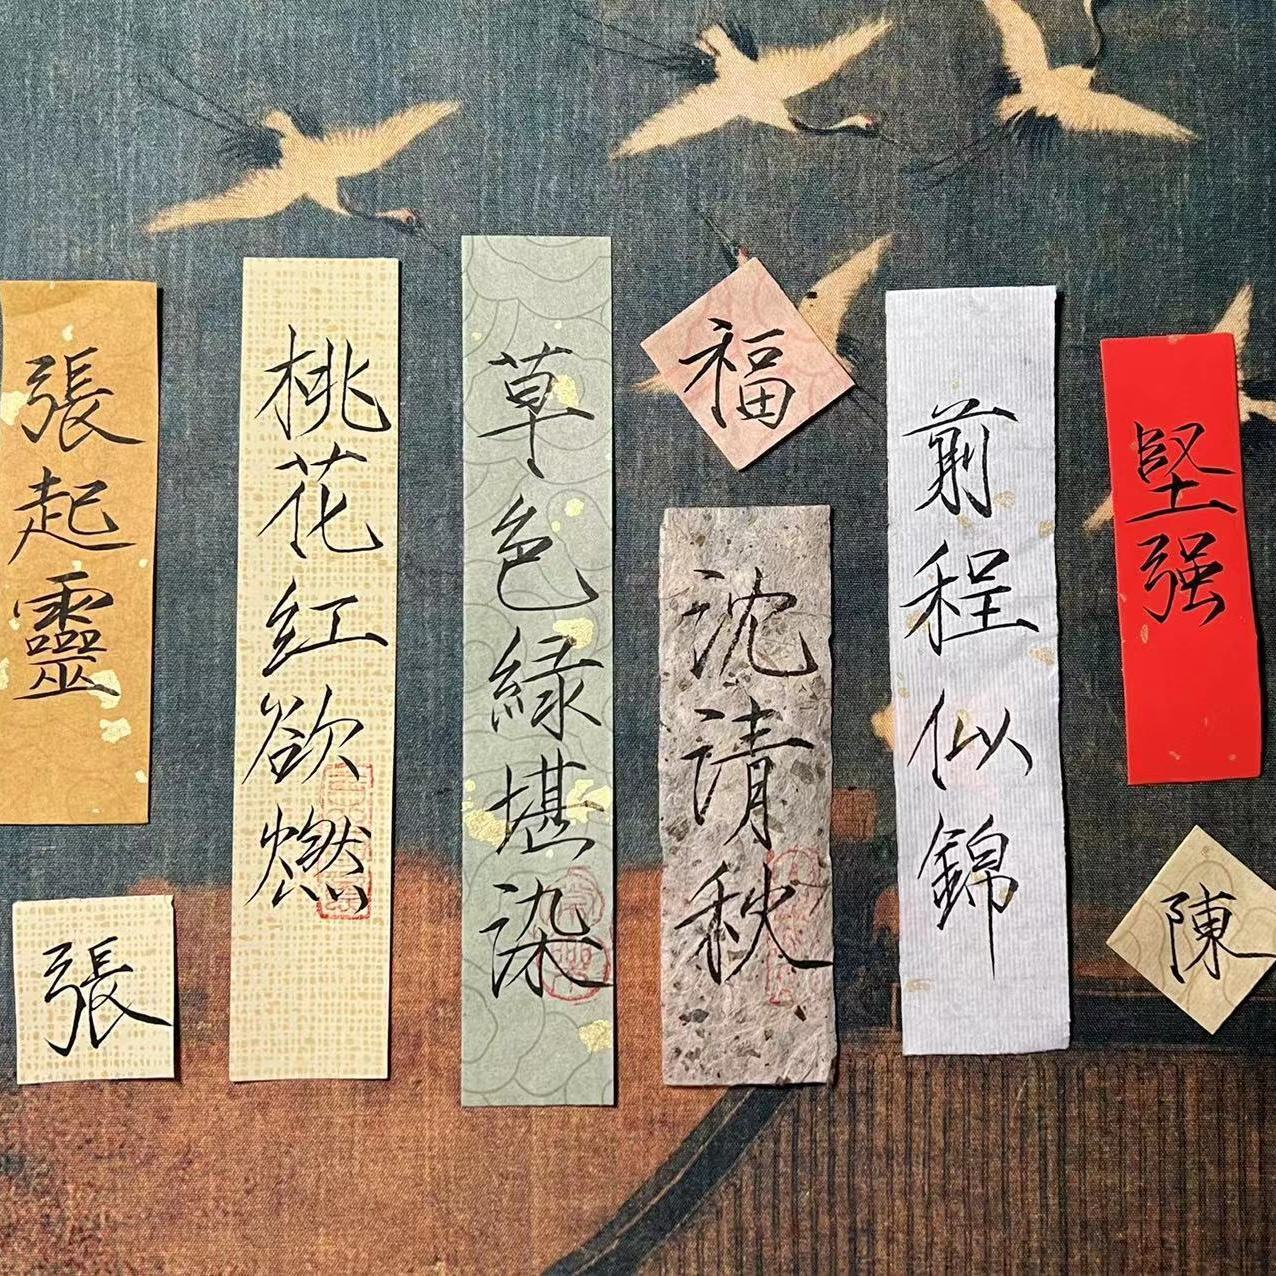 張起靈
張
桃花紅欲燃
草色緑堪染
福
沈清秋
前程似錦
堅强
陳